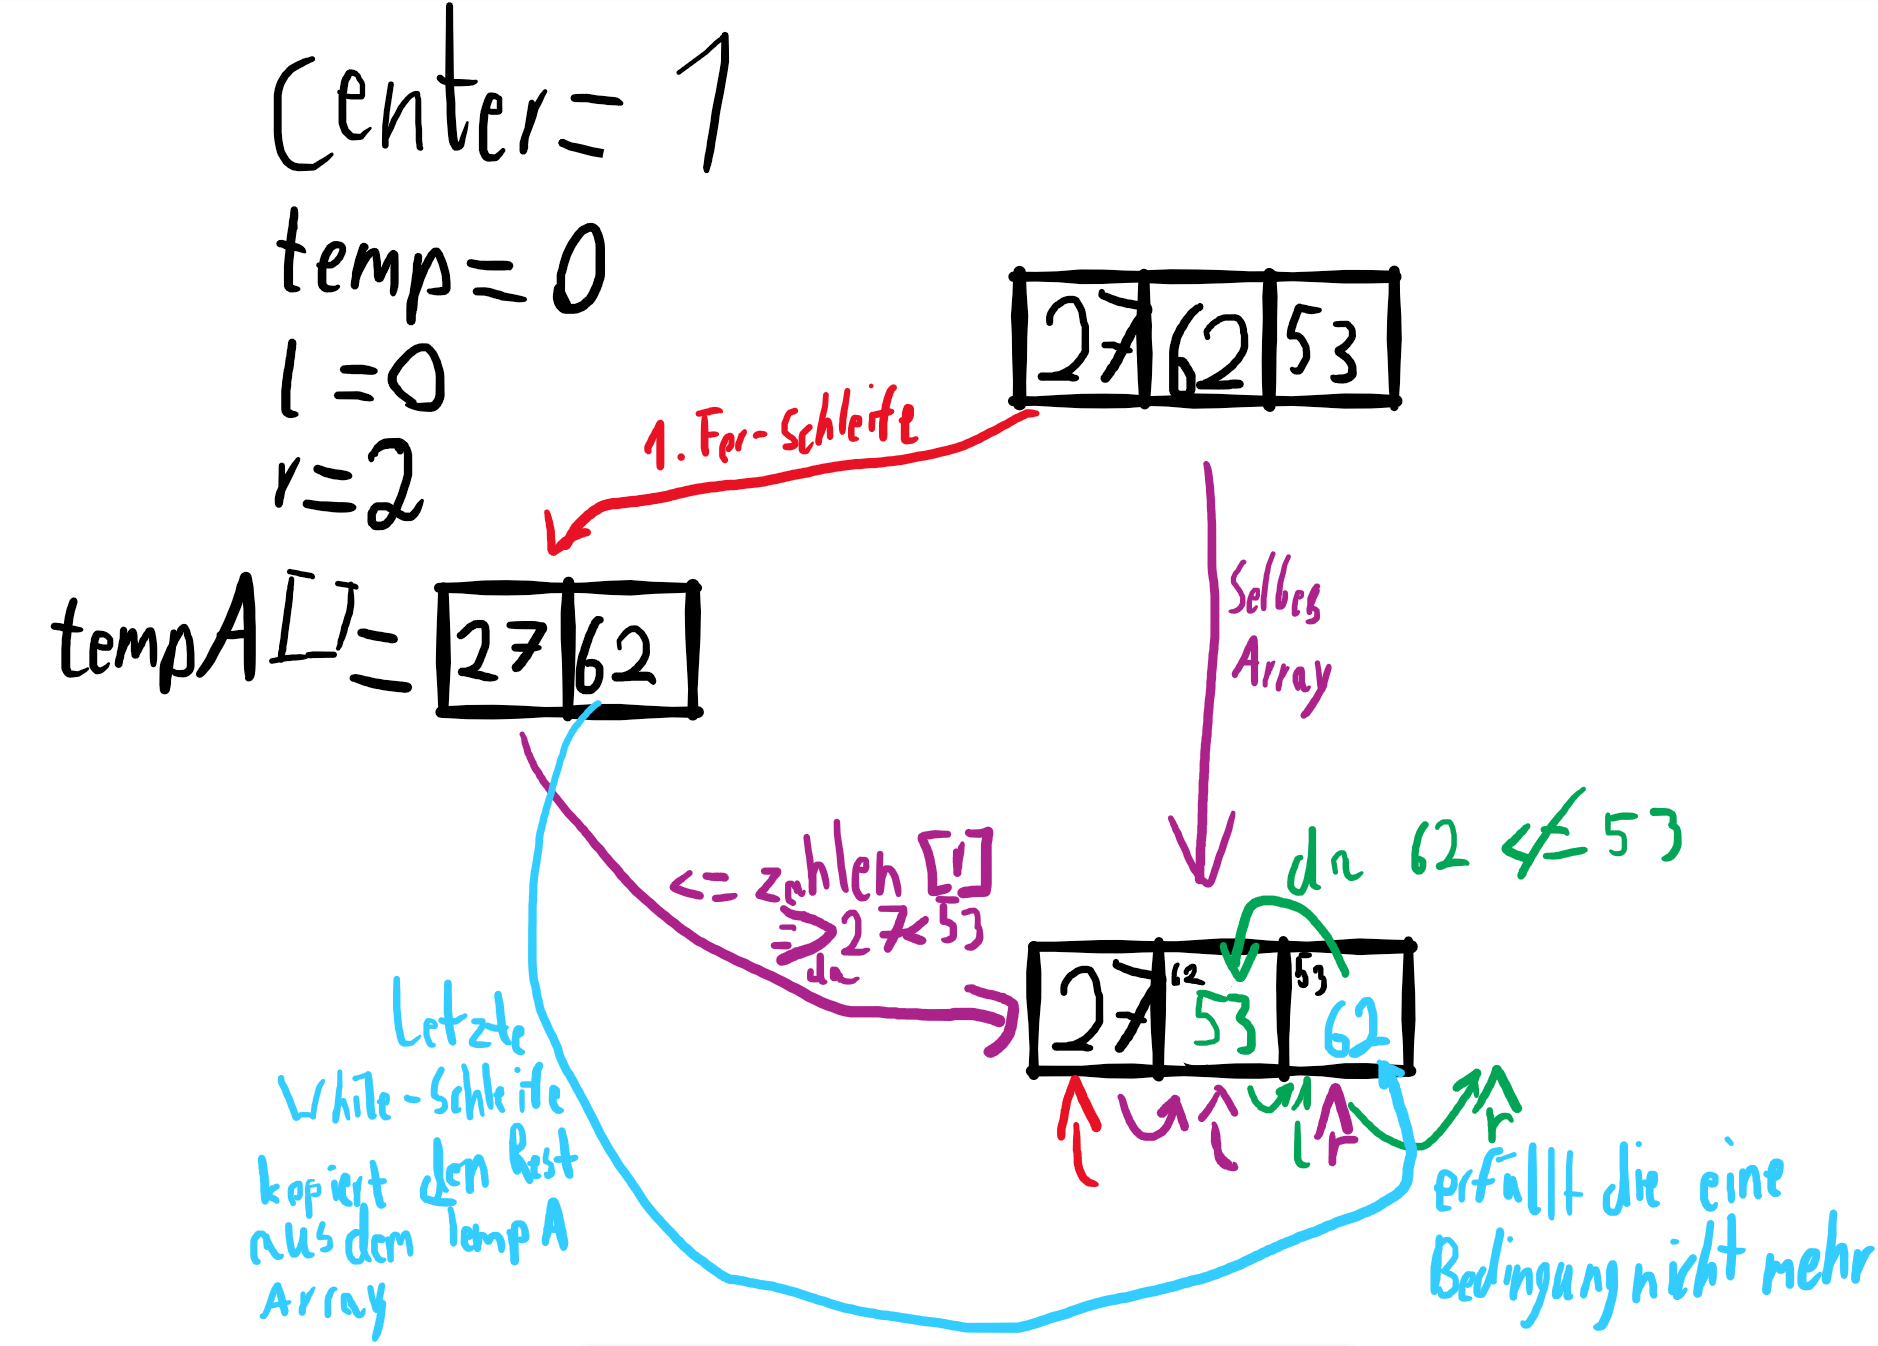 Center= 1
temp=0
l=0
r=2
27 62 53
1. For-Schleife
Selbes
Array
tempA[]=
27 62
<= zahlen [r]
=> 27<53
da
da 62 <≠= 53
27 62 53 53 62
l l l r r
Letzte
While-Schleife
kopiert den Rest
aus dem TempA
Array
erfüllt die eine
Bedingung nicht mehr